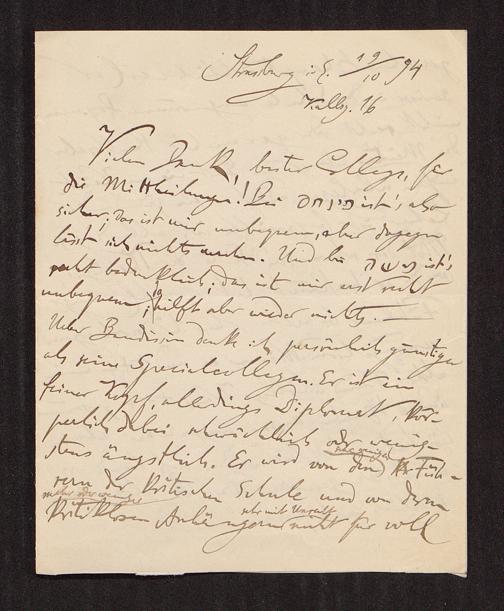 Strassburg i. E. 19/10 94
Kalbsg. 16
Vielen Dank, bester College, für
die Mittheilungen! Bei פינחס ist's also
sicher; das ist mir unbequem, aber dagegen
lässt sich nichts machen. Und bei ist's
recht bedenklich; das ist mir erst recht
unbequem, hilft aber wieder nichts. —
Über Baudissin denke ich persönlich günstiger
als seine Specialcollegen. Er ist ein
feiner Kopf, allerdings Diplomat,
dabei absichtlich oder wenig-
stens ängstlich. Er wird von den Füh-
rern der kritischen Schule und von deren
mehr oder weniger
kritiklosen Anhängern sehr mit Unrecht nicht für voll